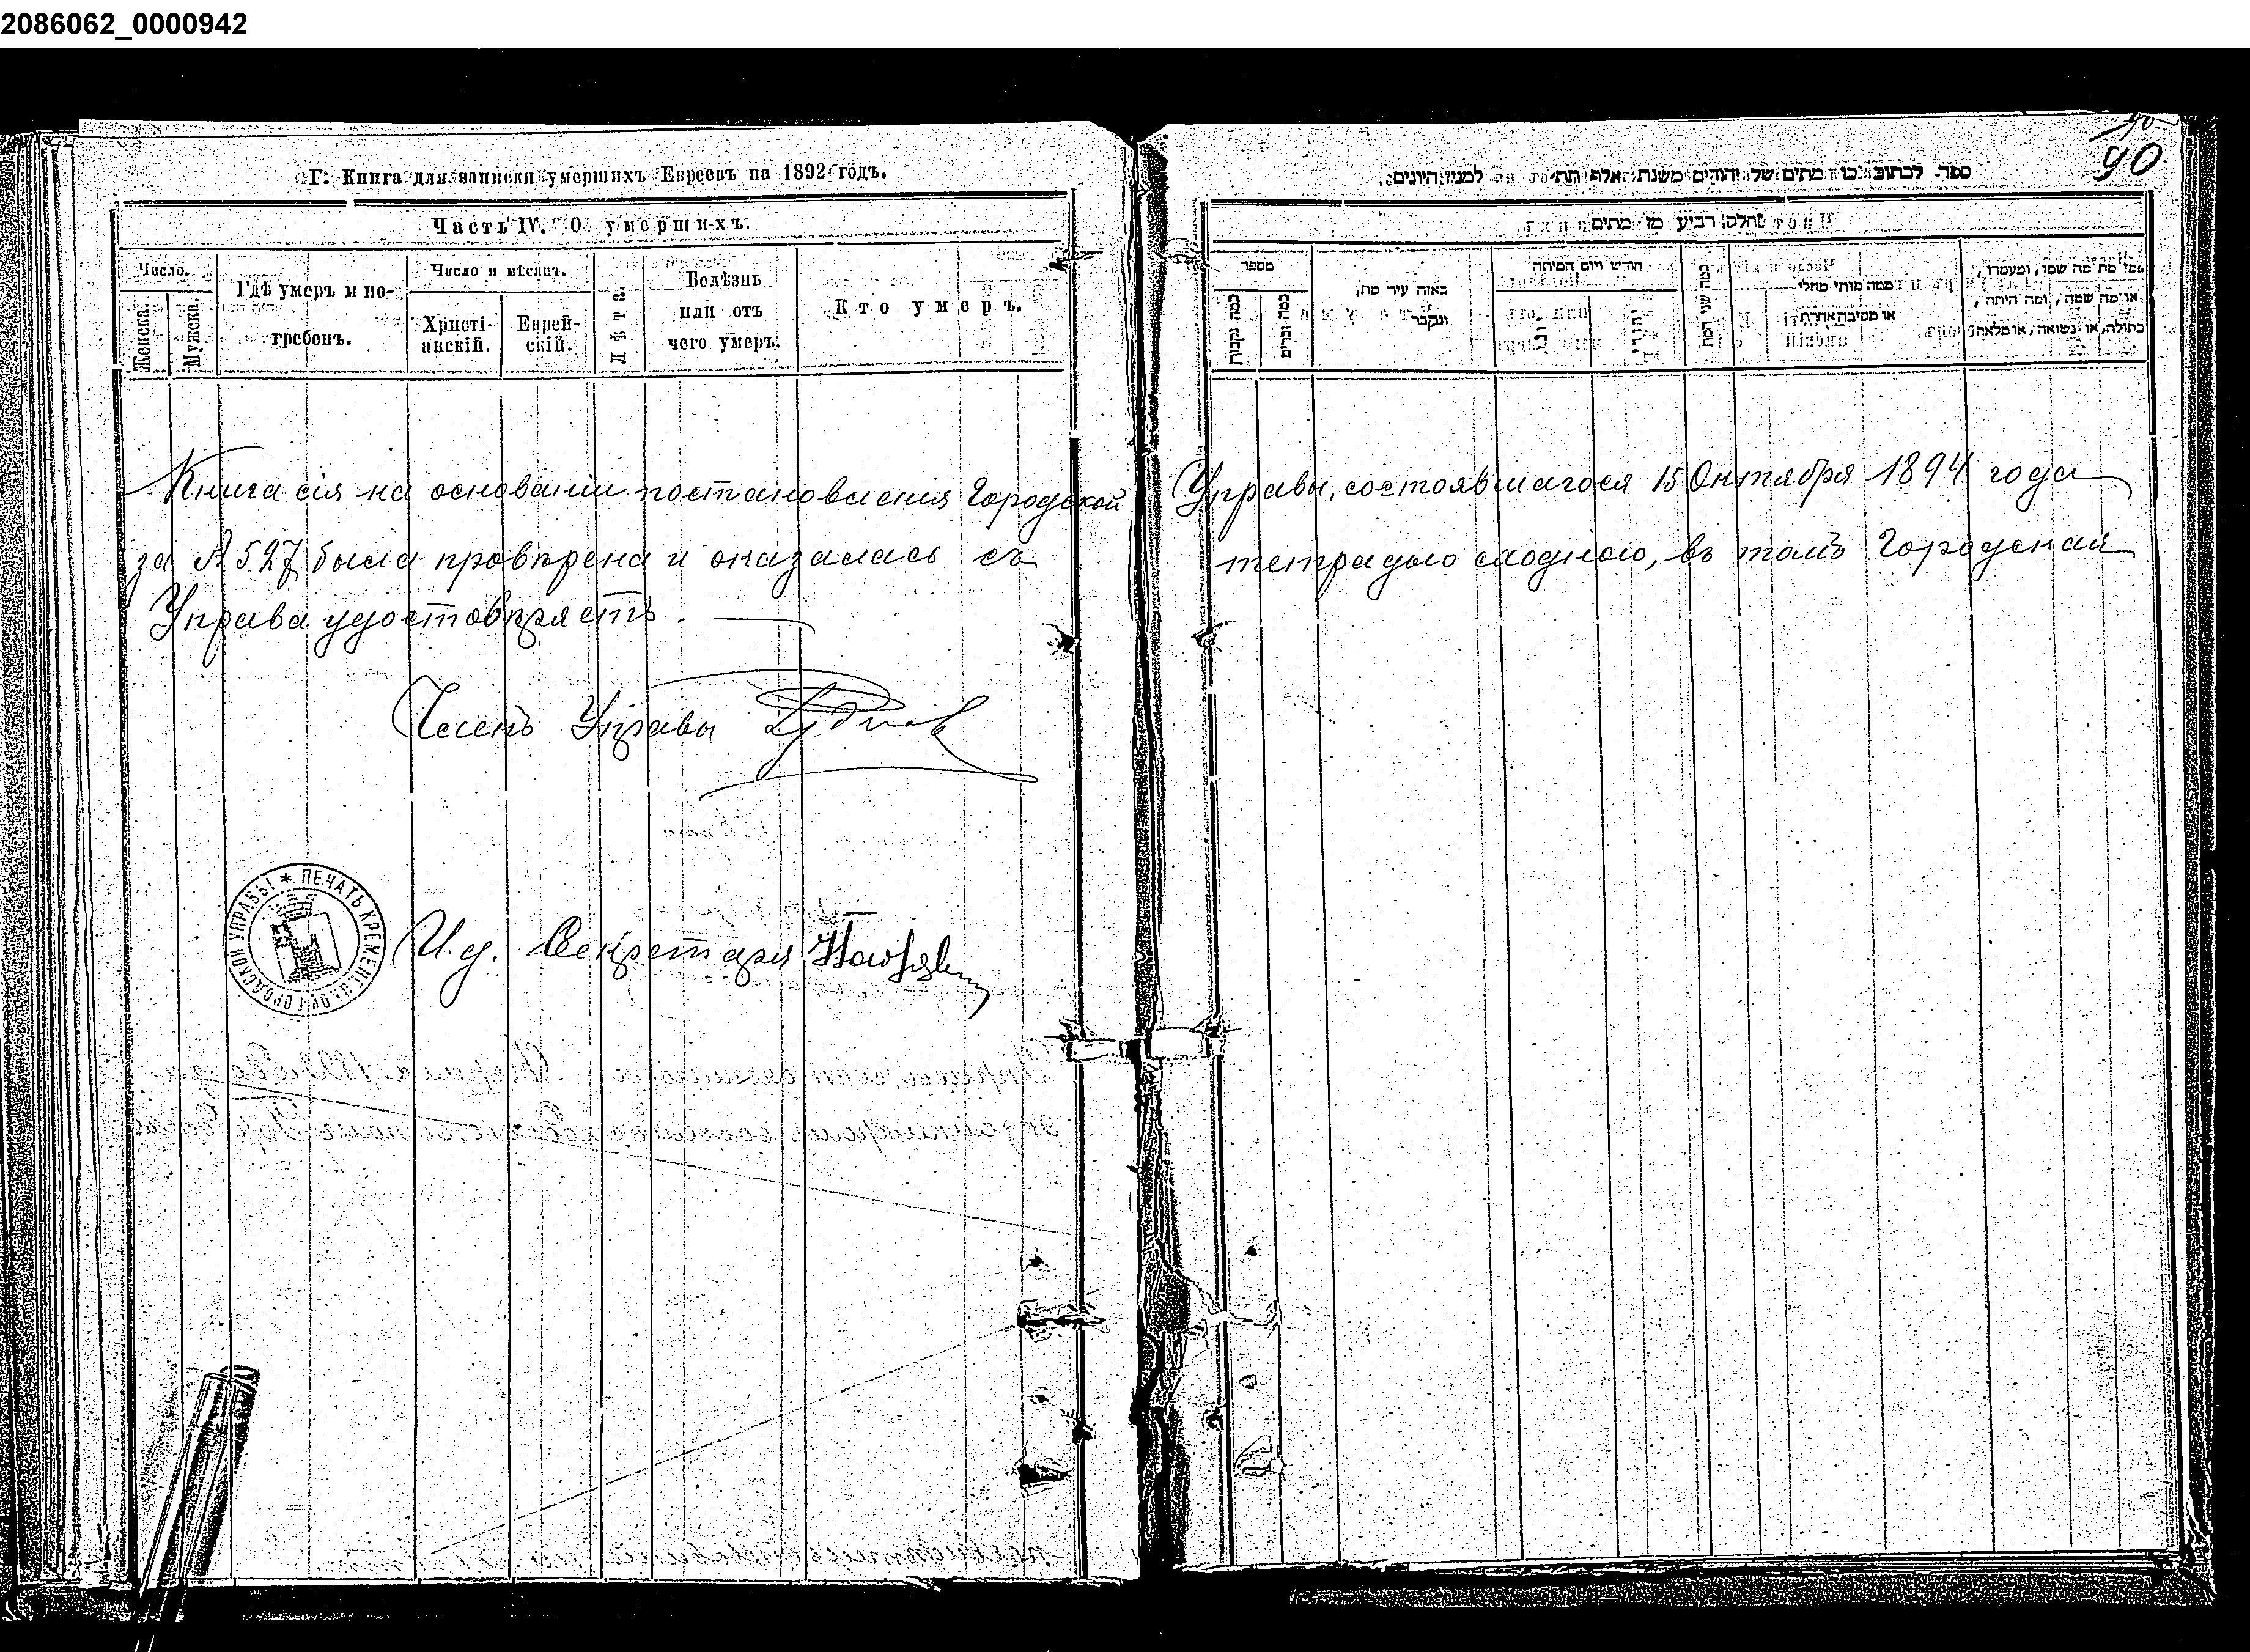 2086062_0000942
Г. Книга для записки умершихъ Евреевъ на 1892 годъ.
Часть IV. О умершихъ.
Число.
Женска.
Мужска.
Гдѣ умеръ и по-
гребенъ.
Число и мѣсяцъ.
Христі-
анскій.
Еврей-
скій.
Лѣта.
Болѣзнь
или отъ
чего умеръ.
Кто умеръ.
90
ספר לכתוב בו מתים של יהודים משנת אלף תת למנין היונים.
חלק רביעי מן מתים
מספר
כמה נקבות
כמה זכרים
באזה עיר מת,
ונקבר
חודש ויום המיתה
יהודי
כמה שני המת
ממה מותי מחלי
או מסיבה אחרת
מי מת מה שמו, ומעמדו,
או מה שמה, ומה היתה,
בתולה, או נשואה, או מלאה
Книга сія на основаніи постановленія Городской Управы, состоявшагося 15 Октября 1894 года
за № 527 была провѣрена и оказалась съ тетрадью сходною, въ томъ Городская
Управа удостовѣряетъ.
Членъ Управы
ПЕЧАТЬ КРЕМЕНЕЦКОЙ ГОРОДСКОЙ УПРАВЫ
И. д. Секретаря